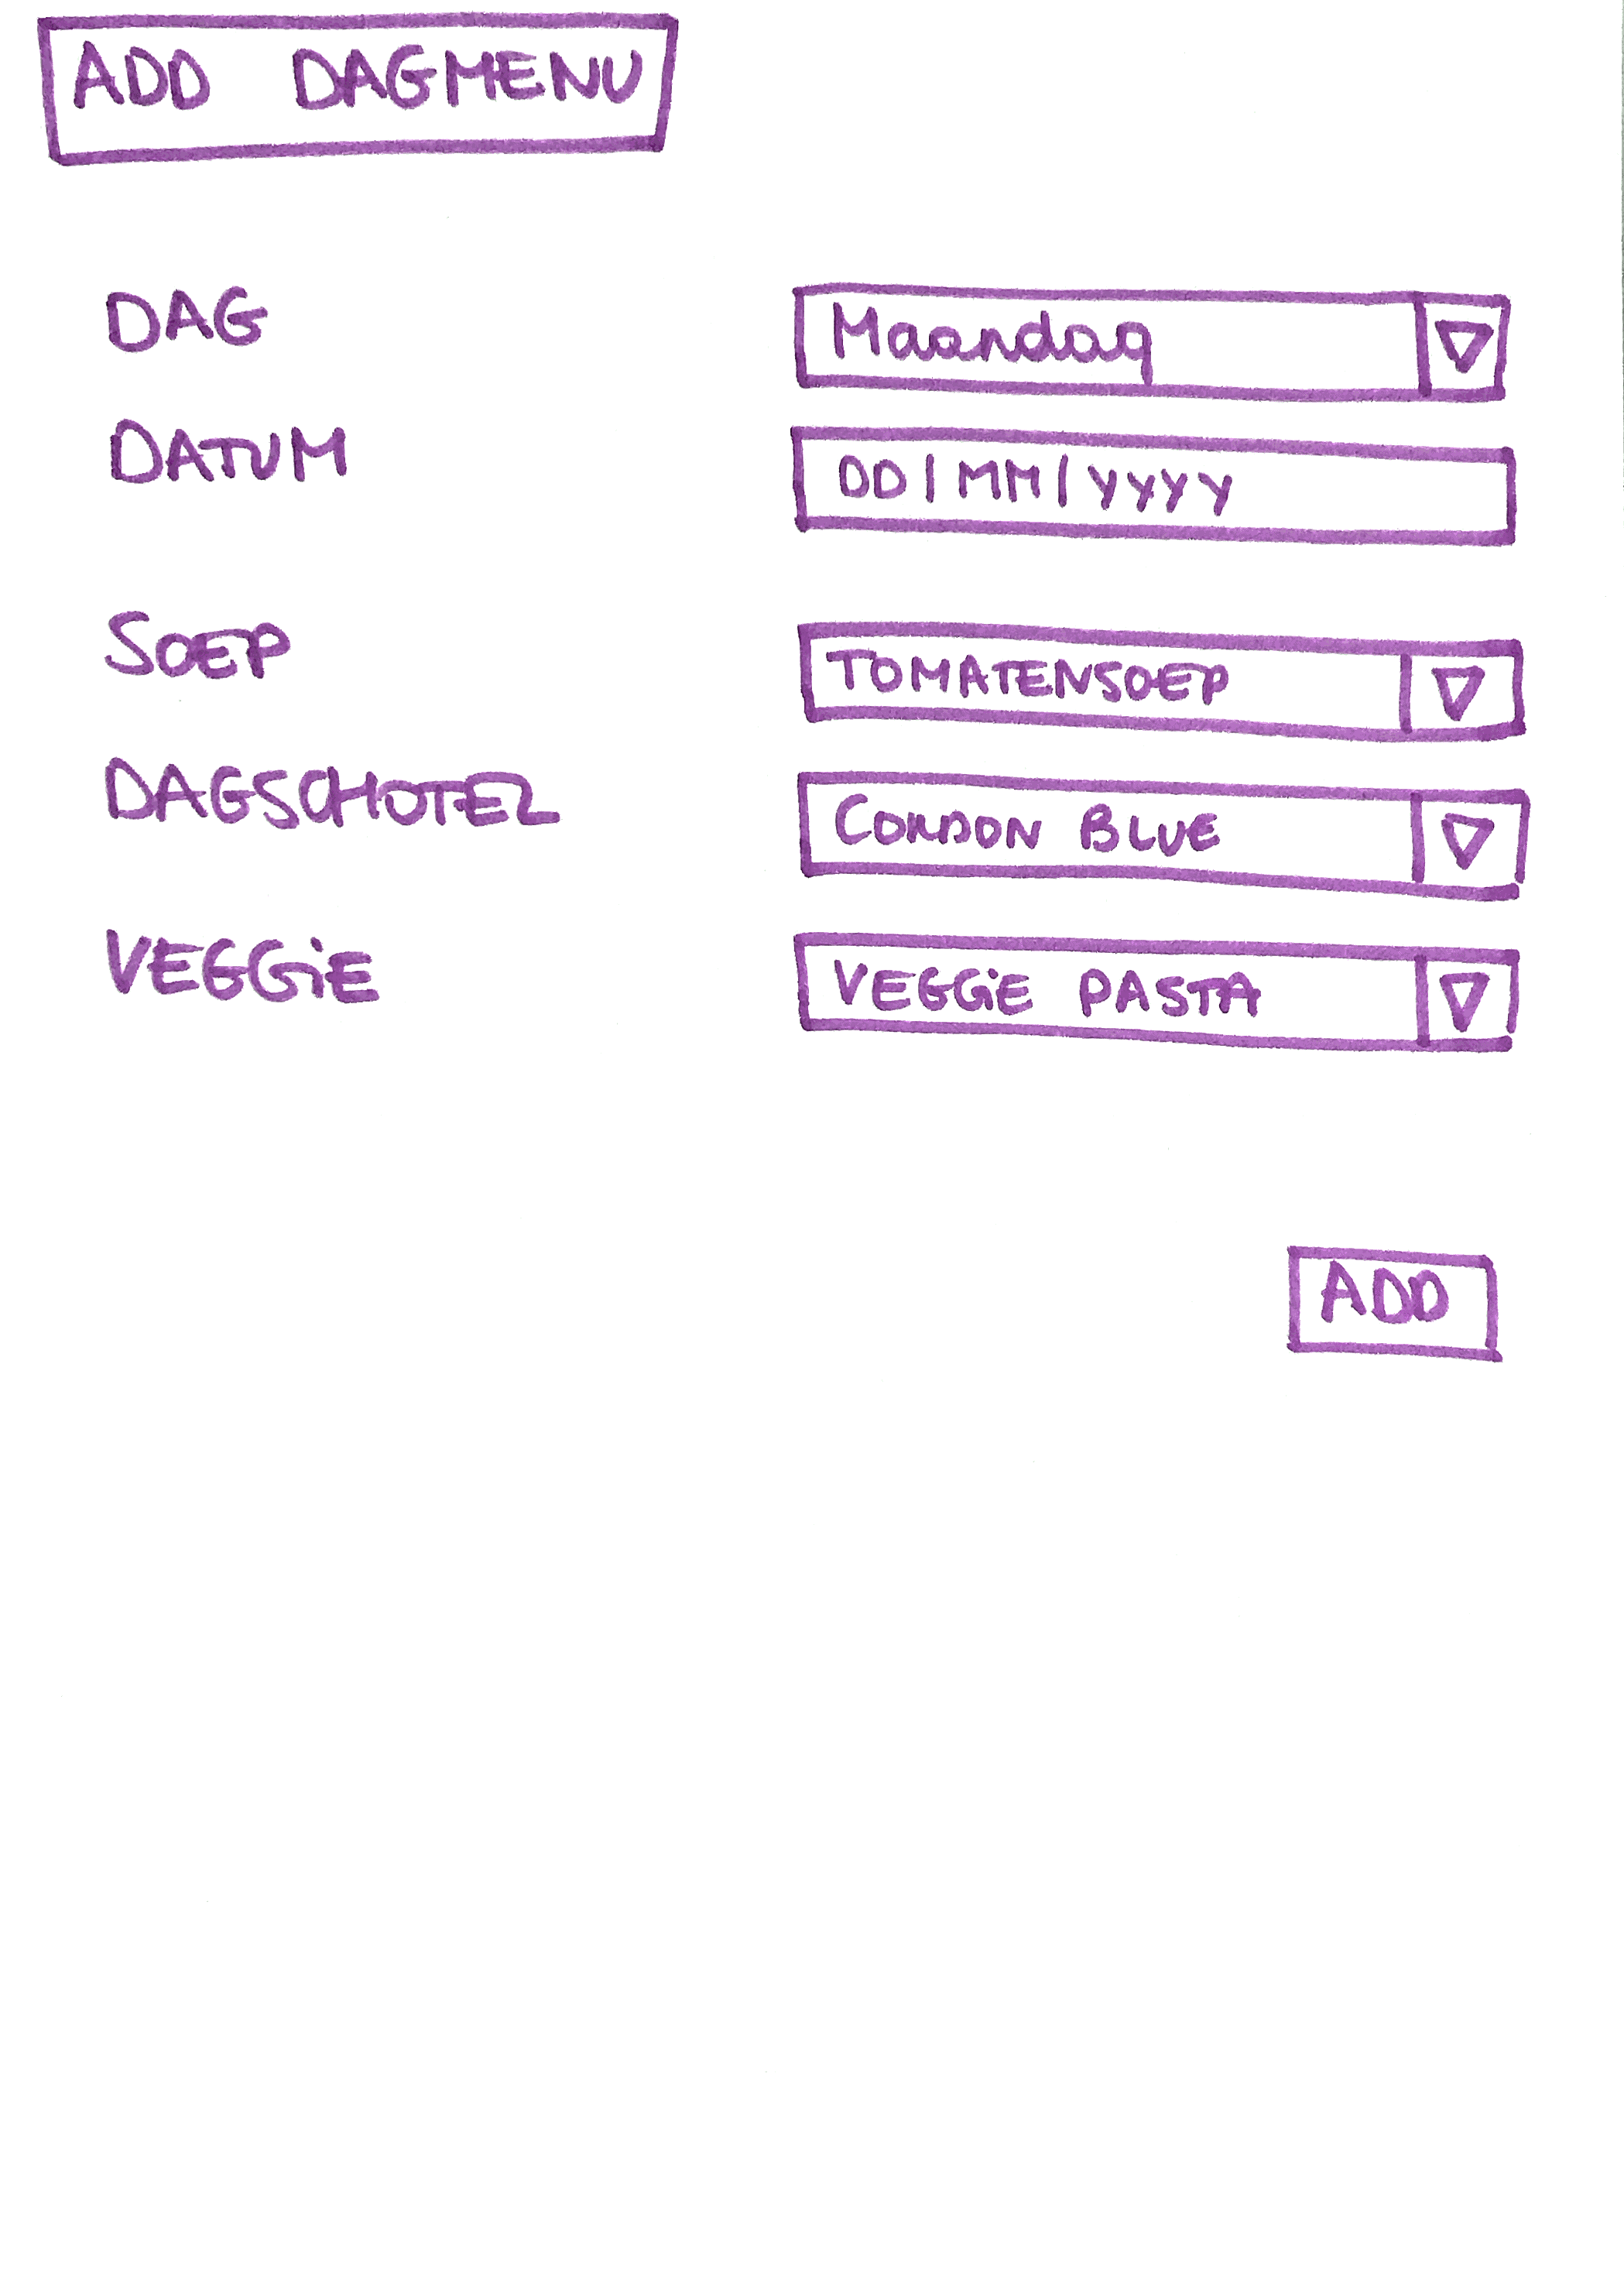 ADD DAGMENU
DAG Maandag
DATUM DD/MM/YYYY
SOEP TOMATENSOEP
DAGSCHOTEL CORDON BLUE
VEGGiE VEGGiE PASTA
ADD